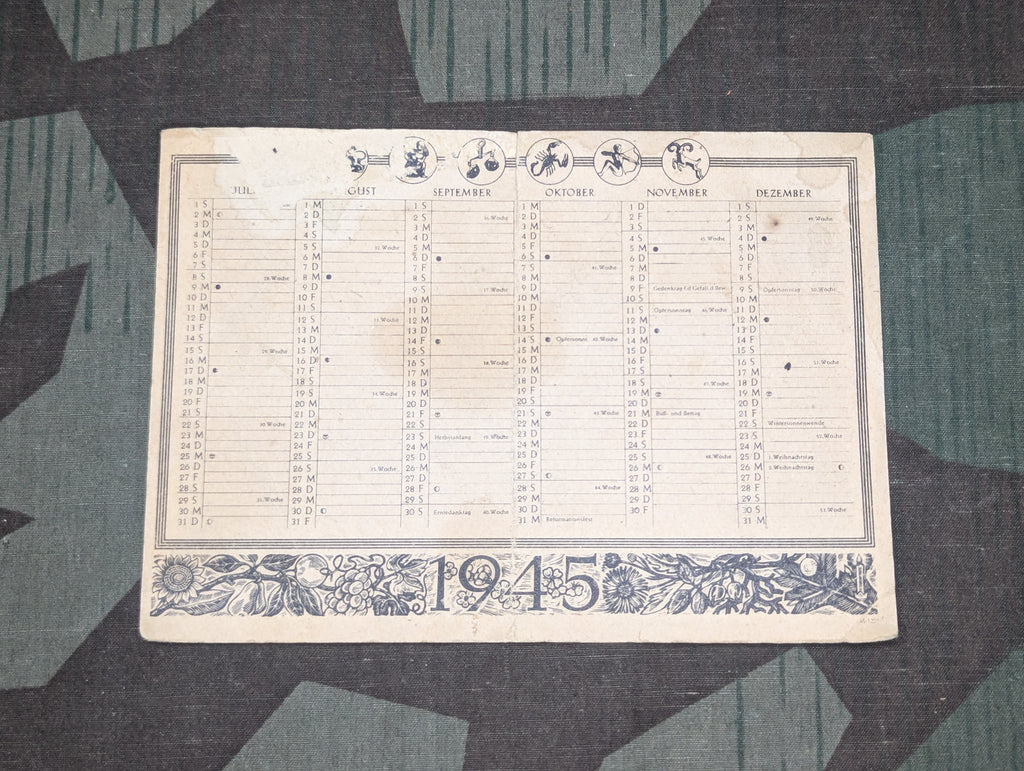 JUL
1 S
2 M
3 D
4 M
5 D
6 F
7 S
8 S 28.Woche
9 M
10 D
11 M
12 D
13 F
14 S
15 S 29.Woche
16 M
17 D
18 M
19 D
20 F
21 S
22 S 30.Woche
23 M
24 D
25 M
26 D
27 F
28 S
29 S 31.Woche
30 M
31 D
GUST
1 M
2 D
3 F
4 S
5 S 32.Woche
6 M
7 D
8 M
9 D
10 F
11 S
12 S 33.Woche
13 M
14 D
15 M
16 D
17 F
18 S
19 S 34.Woche
20 M
21 D
22 M
23 D
24 F
25 S
26 S 35.Woche
27 M
28 D
29 M
30 D
31 F
SEPTEMBER
1 S
2 S 36.Woche
3 M
4 D
5 M
6 D
7 F
8 S
9 S 37.Woche
10 M
11 D
12 M
13 D
14 F
15 S
16 S 38.Woche
17 M
18 D
19 M
20 D
21 F
22 S
23 S Herbstanfang 39.Woche
24 M
25 D
26 M
27 D
28 F
29 S
30 S Erntedanktag 40.Woche
OKTOBER
1 M
2 D
3 M
4 D
5 F
6 S
7 S 41.Woche
8 M
9 D
10 M
11 D
12 F
13 S
14 S Opfersonnt. 42.Woche
15 M
16 D
17 M
18 D
19 F
20 S
21 S 43.Woche
22 M
23 D
24 M
25 D
26 F
27 S
28 S 44.Woche
29 M
30 D
31 M Reformationsfest
NOVEMBER
1 D
2 F
3 S
4 S 45.Woche
5 M
6 D
7 M
8 D
9 F Gedenktag f.d Gefall.d Bew.
10 S
11 S Opfersonntag 46.Woche
12 M
13 D
14 M
15 D
16 F
17 S
18 S 47.Woche
19 M
20 D
21 M Buß- und Bettag
22 D
23 F
24 S
25 S 48.Woche
26 M
27 D
28 M
29 D
30 F
DEZEMBER
1 S
2 S 49.Woche
3 M
4 D
5 M
6 D
7 F
8 S
9 S Opfersonntag 50.Woche
10 M
11 D
12 M
13 D
14 F
15 S
16 S 51.Woche
17 M
18 D
19 M
20 D
21 F
22 S Wintersonnenwende
23 S 52.Woche
24 M
25 D 1.Weihnachtstag
26 M 2.Weihnachtstag
27 D
28 F
29 S
30 S 53.Woche
31 M
1945